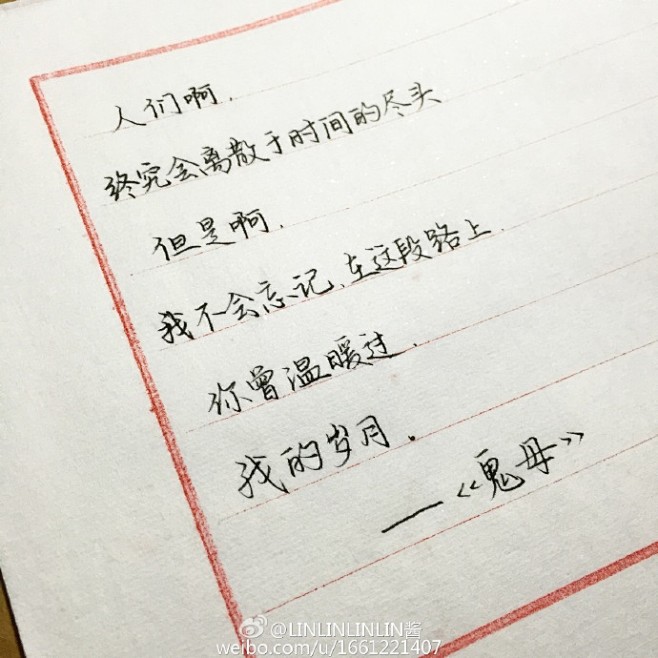 人们啊,
终究会离散于时间的尽头
但是啊,
我不会忘记,在这段路上
你曾温暖过.
我的岁月.
—《鬼母》
@LINLINLINLIN酱
weibo.com/u/1661221407